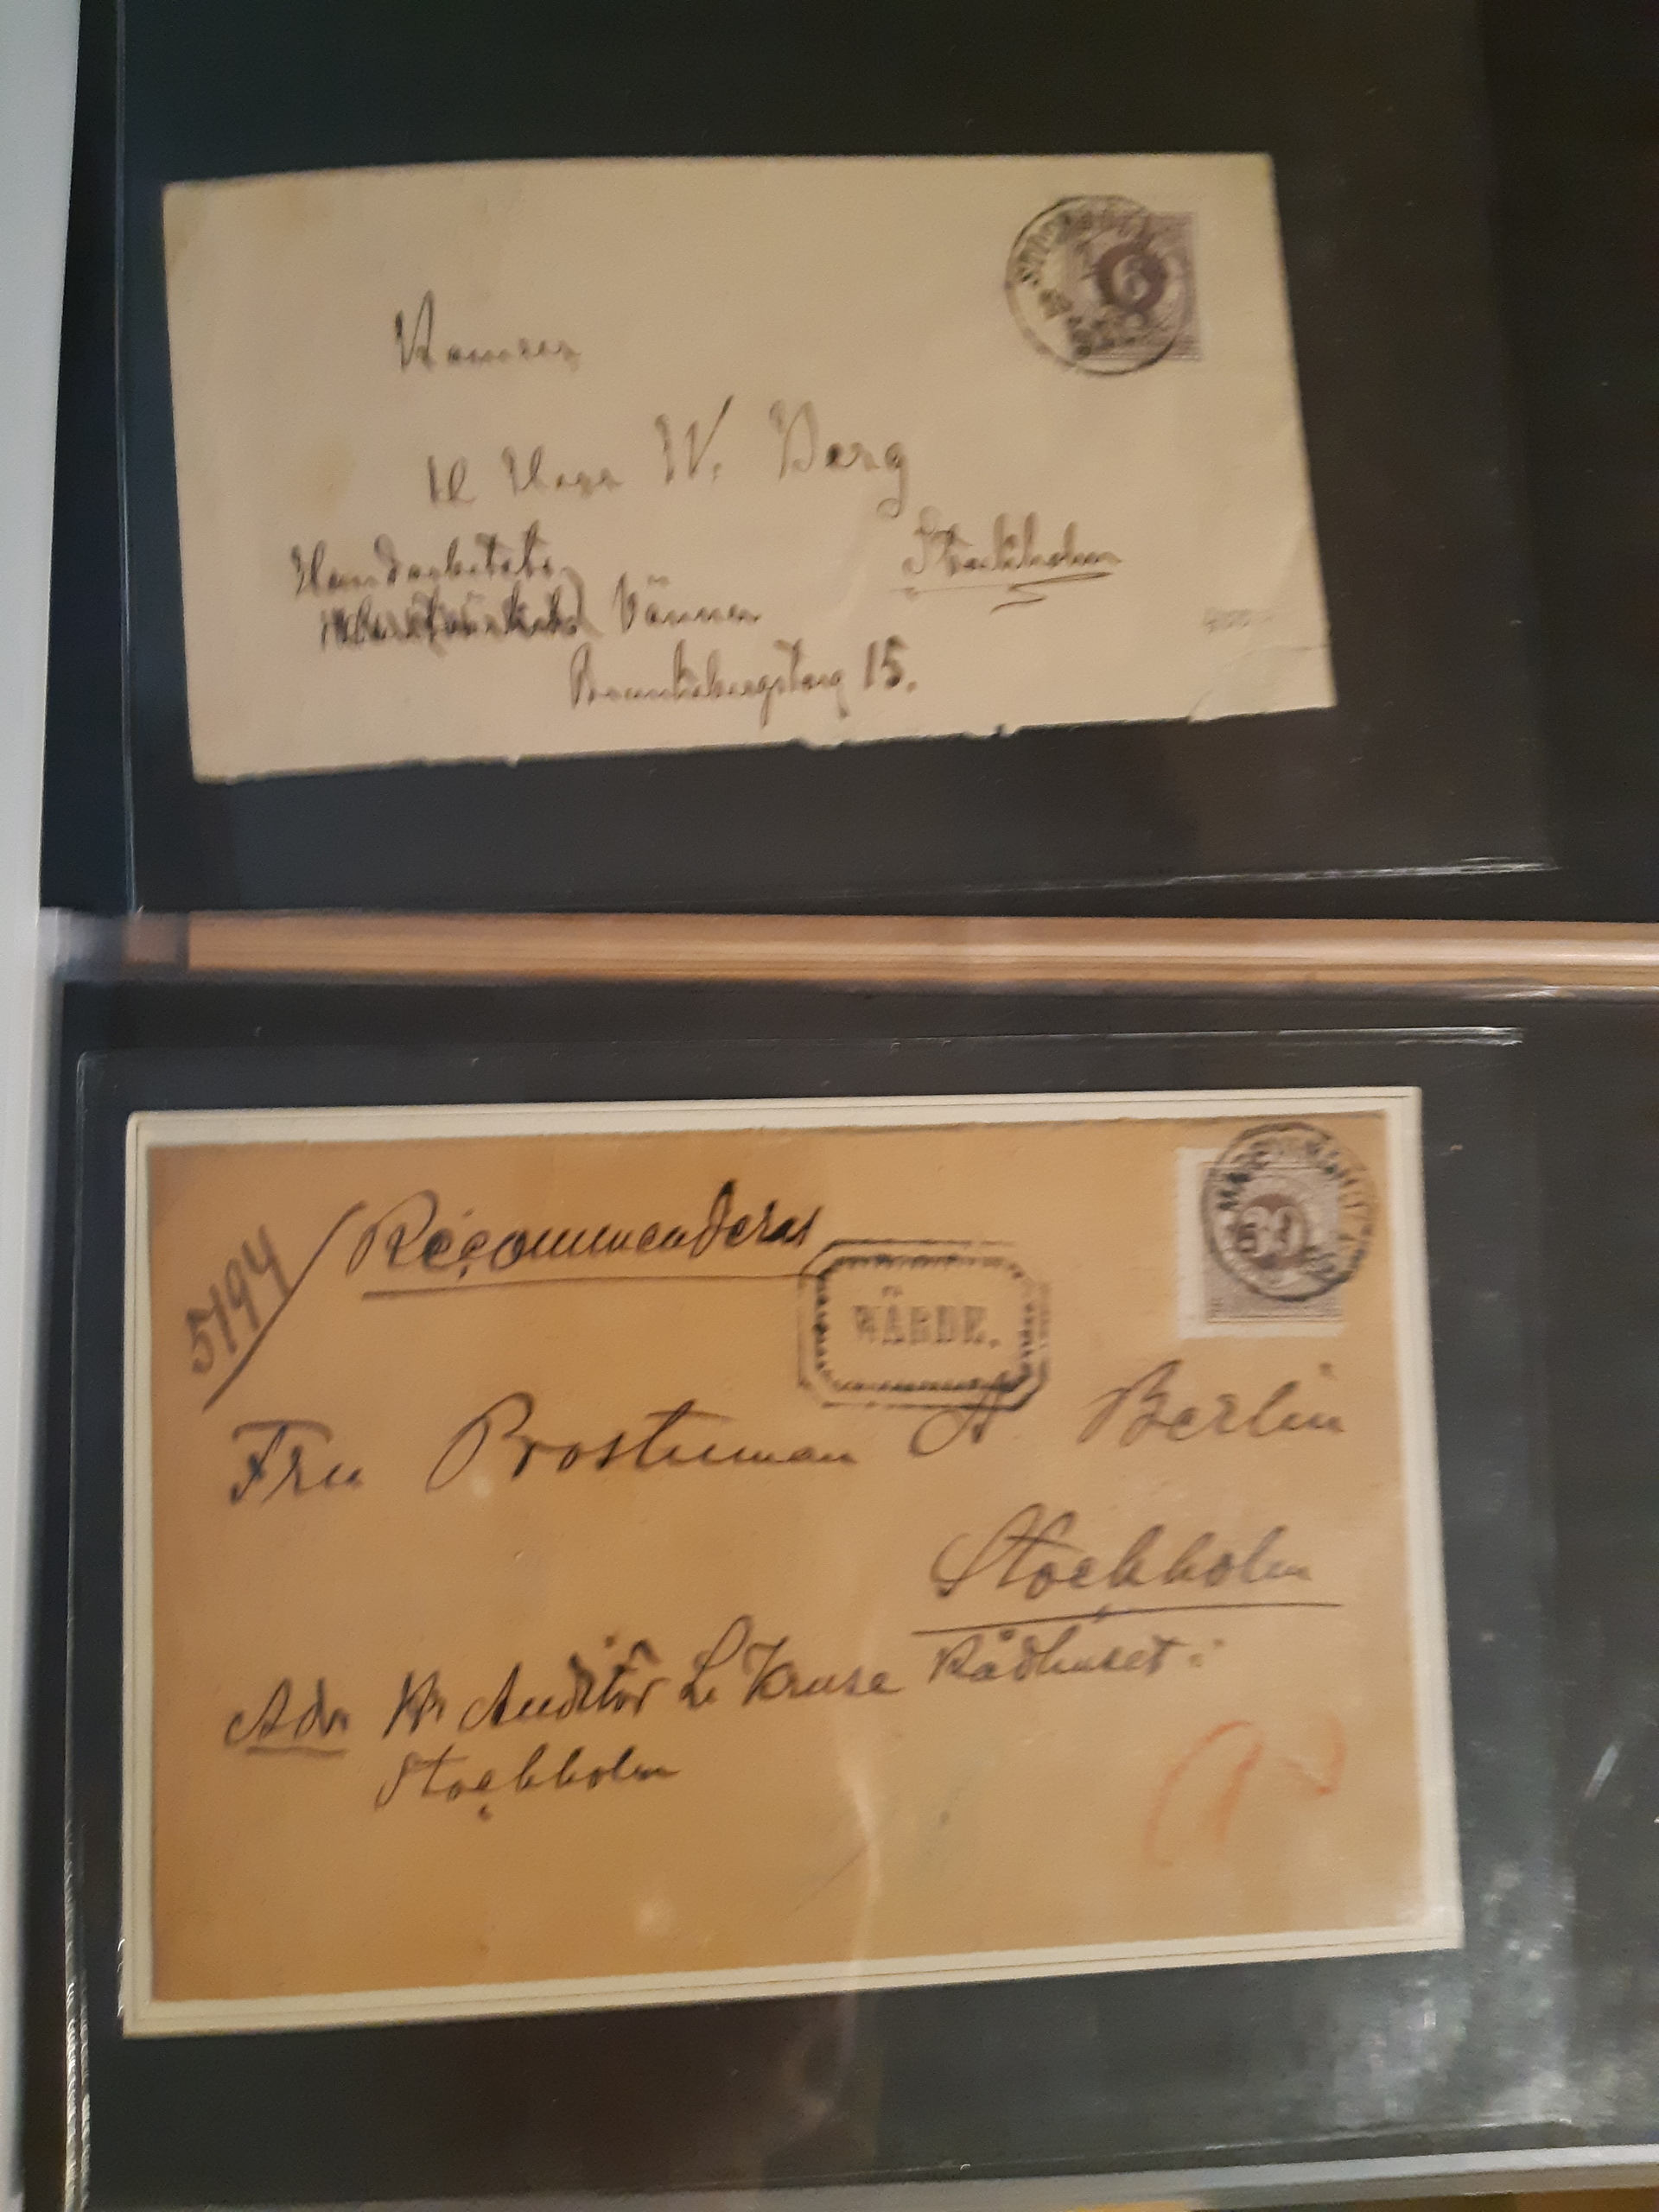 6
W. Berg
Stockholm
Handarbetets
Vänner
Brunkebergstorg 15.
30
5194
Recommenderas
WÄRDE.
Fru Brostruman A Berlin
Stockholm
Adr Hr Auditör L. Kruse Rådhuset:
Stockholm